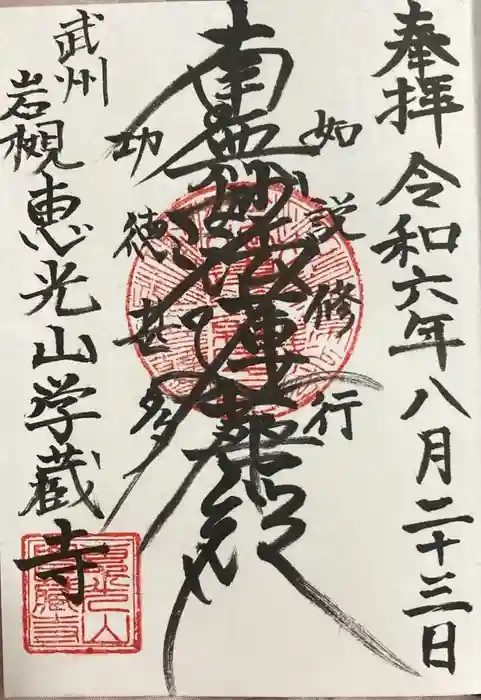 奉拝 令和六年八月二十三日
如説修行
南無妙法蓮華経
功徳甚多
武州
岩槻 恵光山学蔵寺